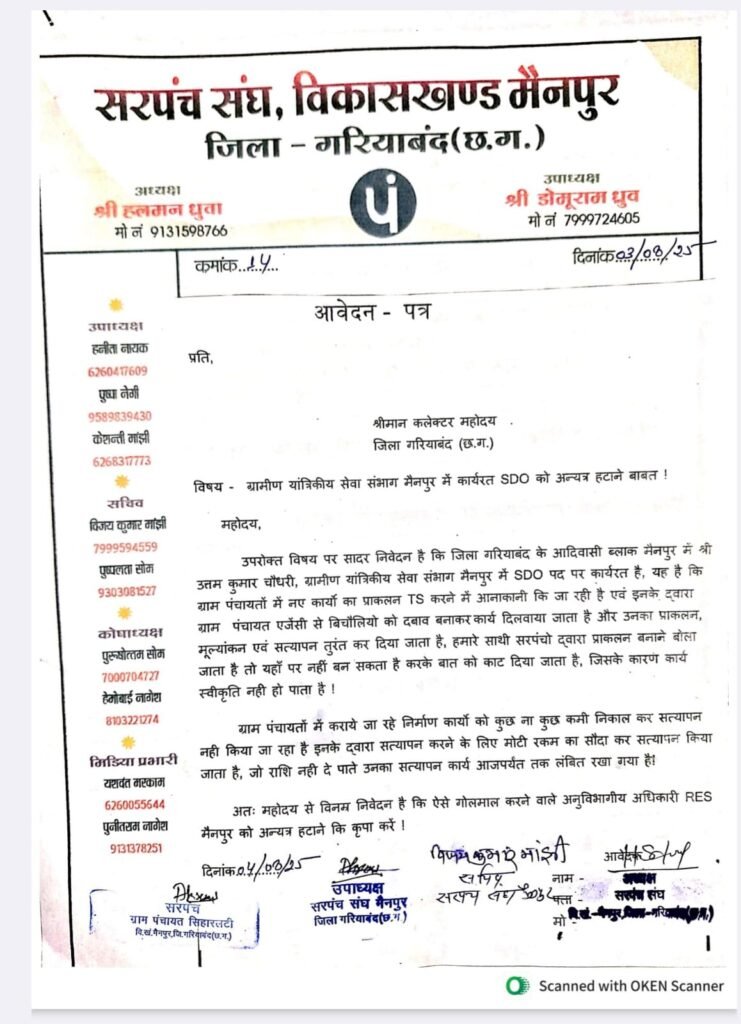 सरपंच संघ, विकासखण्ड मैनपुर
जिला - गरियाबंद(छ.ग.)
अध्यक्ष
श्री हलमन धुवा
मो नं 9131598766
पं
उपाध्यक्ष
श्री डोमूराम धुव
मो नं 7999724605
कमांक..14...
दिनांक03/09/25
आवेदन - पत्र
उपाध्यक्ष
हनीता नायक
6260417609
पुष्पा नेगी
9589839430
केशन्ती मांझी
6268317773
सचिव
विजय कुमार मांझी
7999594559
पुष्पलता सोम
9303081527
कोषाध्यक्ष
पुरुषोत्तम सोम
7000704727
हेमोबाई नागेश
8103221274
मिडिया प्रभारी
यशवंत मरकाम
6260055644
पुनीतराम नागेश
9131378251
प्रति,
श्रीमान कलेक्टर महोदय
जिला गरियाबंद (छ.ग.)
विषय - ग्रामीण यांत्रिकीय सेवा संभाग मैनपुर में कार्यरत SDO को अन्यत्र हटाने बाबत !
महोदय,
उपरोक्त विषय पर सादर निवेदन है कि जिला गरियाबंद के आदिवासी ब्लाक मैनपुर में श्री
उत्तम कुमार चौधरी, ग्रामीण यांत्रिकीय सेवा संभाग मैनपुर में SDO पद पर कार्यरत है, यह है कि
ग्राम पंचायतों में नए कार्यो का प्राकलन TS करने में आनाकानी कि जा रही है एवं इनके द्वारा
ग्राम पंचायत एजेंसी से बिचौलियो को दबाव बनाकर कार्य दिलवाया जाता है और उनका प्राकलन,
मूल्यांकन एवं सत्यापन तुरंत कर दिया जाता है, हमारे साथी सरपंचो द्वारा प्राकलन बनाने बोला
जाता है तो यहाँ पर नहीं बन सकता है करके बात को काट दिया जाता है, जिसके कारण कार्य
स्वीकृति नही हो पाता है !
ग्राम पंचायतों में कराये जा रहे निर्माण कार्यो को कुछ ना कुछ कमी निकाल कर सत्यापन
नही किया जा रहा है इनके द्वारा सत्यापन करने के लिए मोटी रकम का सौदा कर सत्यापन किया
जाता है, जो राशि नही दे पाते उनका सत्यापन कार्य आजपर्यंत तक लंबित रखा गया है!
अतः महोदय से विनम्र निवेदन है कि ऐसे गोलमाल करने वाले अनुविभागीय अधिकारी RES
मैनपुर को अन्यत्र हटाने कि कृपा करें !
दिनांक04/09/25
सरपंच
ग्राम पंचायत सिहारलटी
वि.खं.मैनपुर,जि.गरियाबंद(छ.ग.)
उपाध्यक्ष
सरपंच संघ मैनपुर
जिला गरियाबंद(छ.ग.)
विजय कुमार मांझी
सचिव
सरपंच संघ
आवेदक
नाम -
पता -
मो -
अध्यक्ष
सरपंच संघ
वि.खं.-मैनपुर,जिला-गरियाबंद(छ.ग.)
Scanned with OKEN Scanner